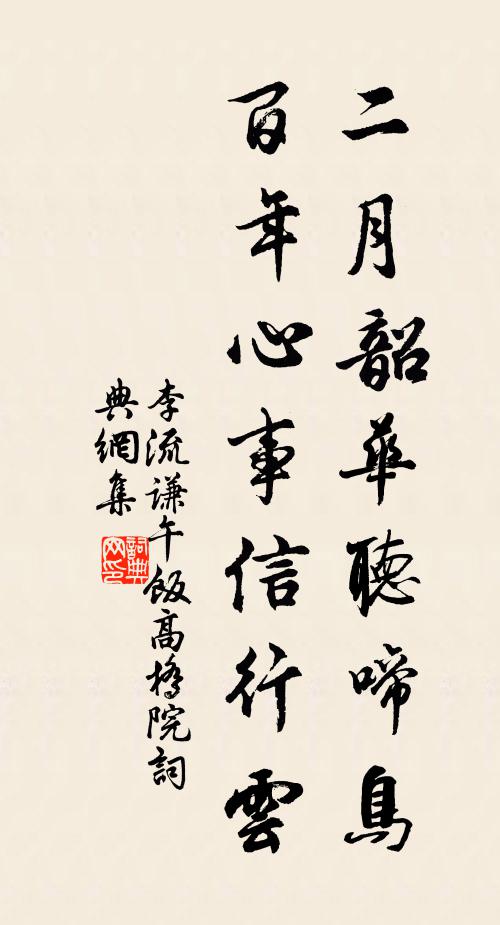 二月韶華聽啼鳥
百年心事信行雲
李流謙午飯高橋院詞
典網集
詞典
网印